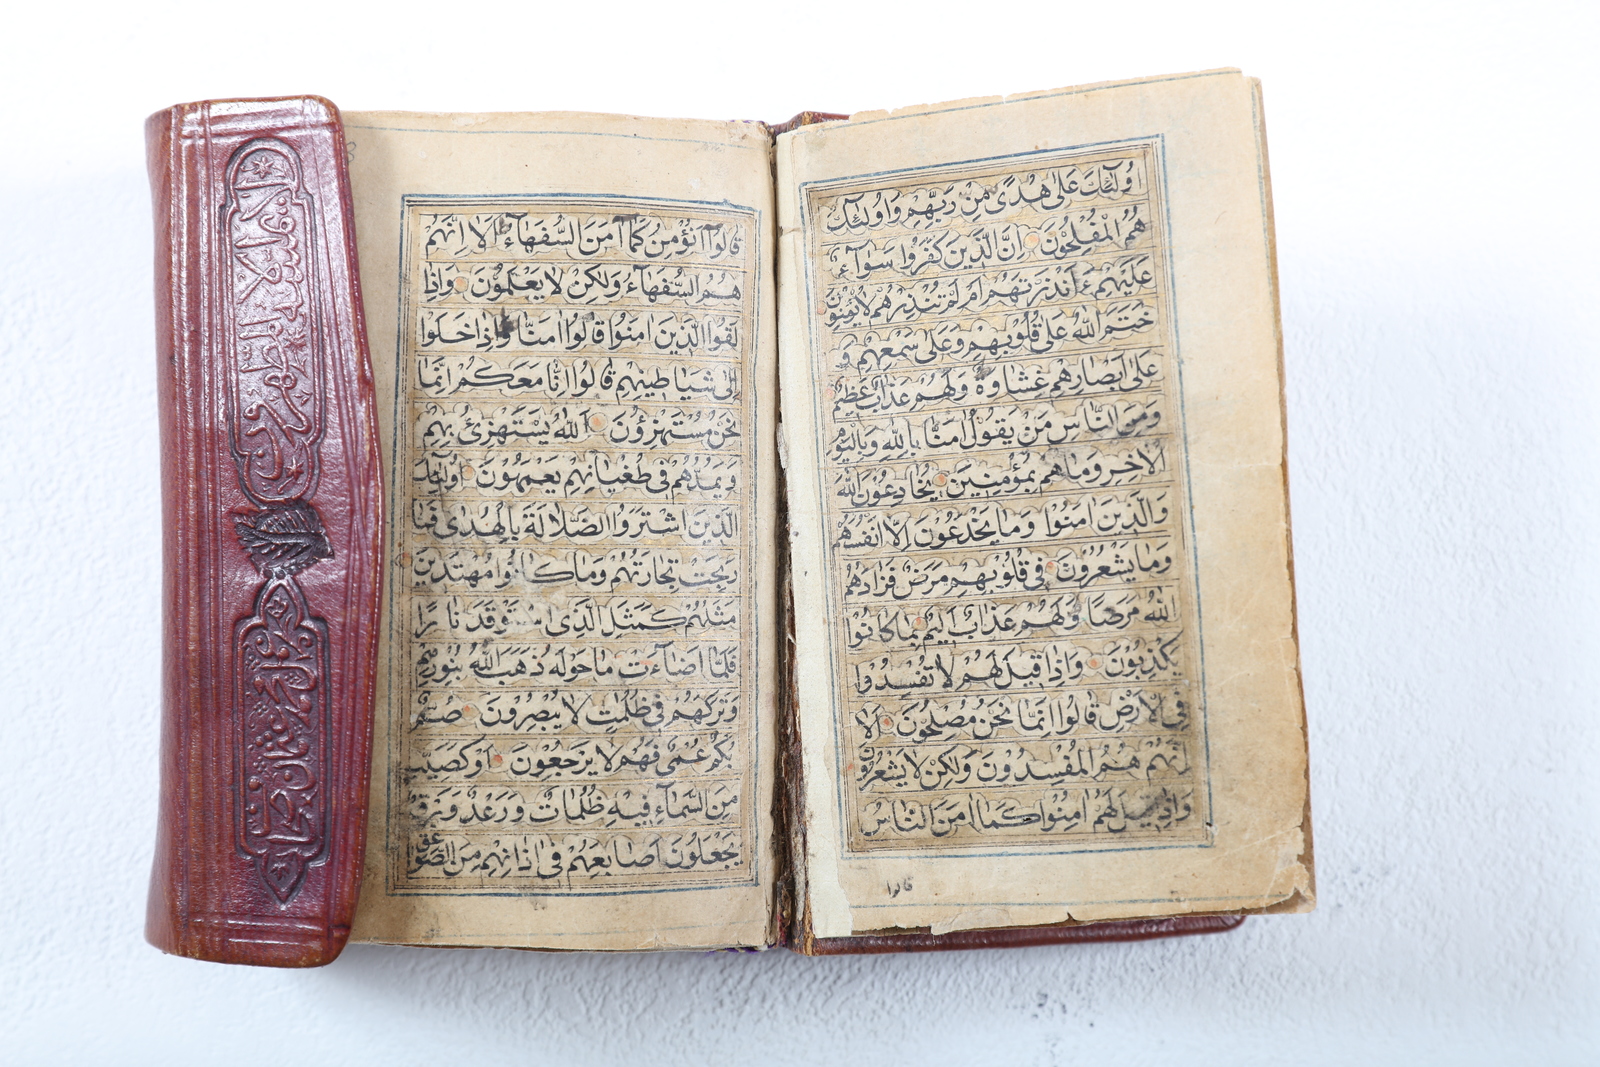 اُولٰئِكَ عَلٰى هُدًى مِنْ رَبِّهِمْ وَاُولٰئِكَ
هُمُ الْمُفْلِحُونَ اِنَّ الَّذِينَ كَفَرُوا سَوَاءٌ
عَلَيْهِمْ ءَاَنْذَرْتَهُمْ اَمْ لَمْ تُنْذِرْهُمْ لَا يُؤْمِنُونَ
خَتَمَ اللّٰهُ عَلٰى قُلُوبِهِمْ وَعَلٰى سَمْعِهِمْ وَ
عَلٰى اَبْصَارِهِمْ غِشَاوَةٌ وَلَهُمْ عَذَابٌ عَظِيمٌ
وَمِنَ النَّاسِ مَنْ يَقُولُ اٰمَنَّا بِاللّٰهِ وَبِالْيَوْمِ
الْاٰخِرِ وَمَا هُمْ بِمُؤْمِنِينَ يُخَادِعُونَ اللّٰهَ
وَالَّذِينَ اٰمَنُوا وَمَا يَخْدَعُونَ اِلَّا اَنْفُسَهُمْ
وَمَا يَشْعُرُونَ فِى قُلُوبِهِمْ مَرَضٌ فَزَادَهُمُ
اللّٰهُ مَرَضًا وَلَهُمْ عَذَابٌ اَلِيمٌ بِمَا كَانُوا
يَكْذِبُونَ وَاِذَا قِيلَ لَهُمْ لَا تُفْسِدُوا
فِى الْاَرْضِ قَالُوا اِنَّمَا نَحْنُ مُصْلِحُونَ اَلَا
اِنَّهُمْ هُمُ الْمُفْسِدُونَ وَلٰكِنْ لَا يَشْعُرُونَ
وَاِذَا قِيلَ لَهُمْ اٰمِنُوا كَمَا اٰمَنَ النَّاسُ
قالوا
قَالُوا اَنُؤْمِنُ كَمَا اٰمَنَ السُّفَهَاءُ اَلَا اِنَّهُمْ
هُمُ السُّفَهَاءُ وَلٰكِنْ لَا يَعْلَمُونَ وَاِذَا
لَقُوا الَّذِينَ اٰمَنُوا قَالُوا اٰمَنَّا وَاِذَا خَلَوْا
اِلٰى شَيَاطِينِهِمْ قَالُوا اِنَّا مَعَكُمْ اِنَّمَا
نَحْنُ مُسْتَهْزِؤُنَ اَللّٰهُ يَسْتَهْزِئُ بِهِمْ
وَيَمُدُّهُمْ فِى طُغْيَانِهِمْ يَعْمَهُونَ اُولٰئِكَ
الَّذِينَ اشْتَرَوُا الضَّلَالَةَ بِالْهُدٰى فَمَا
رَبِحَتْ تِجَارَتُهُمْ وَمَا كَانُوا مُهْتَدِينَ
مَثَلُهُمْ كَمَثَلِ الَّذِى اسْتَوْقَدَ نَارًا
فَلَمَّا اَضَاءَتْ مَا حَوْلَهُ ذَهَبَ اللّٰهُ بِنُورِهِمْ
وَتَرَكَهُمْ فِى ظُلُمٰتٍ لَا يُبْصِرُونَ صُمٌّ
بُكْمٌ عُمْىٌ فَهُمْ لَا يَرْجِعُونَ اَوْ كَصَيِّبٍ
مِنَ السَّمَاءِ فِيهِ ظُلُمَاتٌ وَرَعْدٌ وَبَرْقٌ
يَجْعَلُونَ اَصَابِعَهُمْ فِى اٰذَانِهِمْ مِنَ الصَّوَاعِقِ
لا يمسه الا المطهرون